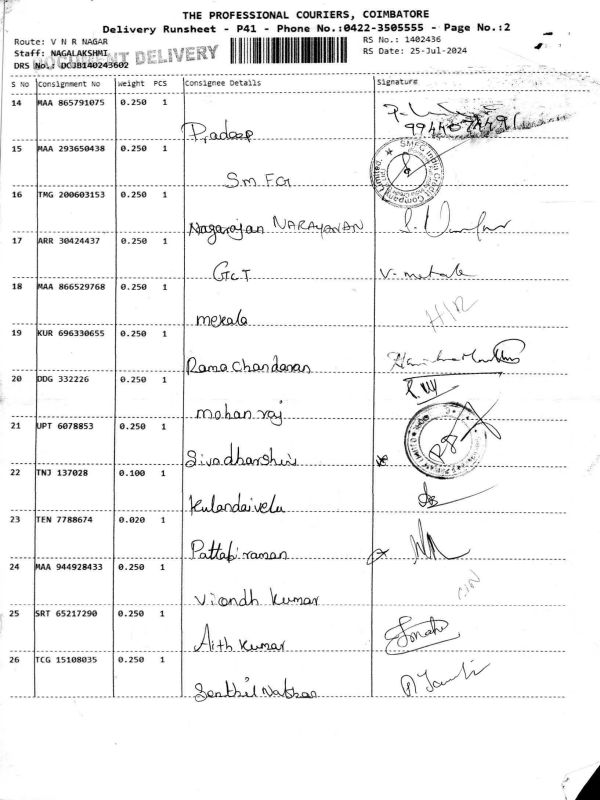 THE PROFESSIONAL COURIERS, COIMBATORE
Delivery Runsheet - P41 - Phone No.:0422-3505555 - Page No.:2
Route: V N R NAGAR
RS No.: 1402436
Staff: NAGALAKSHMI
DOCUMENT DELIVERY
RS Date: 25-Jul-2024
DRS No.: DCJB140243602
S No Consignment No Weight PCS Consignee Details Signature
14 MAA 865791075 0.250 1
Pradeep 9944074491
15 MAA 293650438 0.250 1
SMFG India Credit Company Limited
Sm FG
16 TMG 200603153 0.250 1
Nagarajan NARAYANAN
17 ARR 30424437 0.250 1
GCT V. mekala
18 MAA 866529768 0.250 1
mekala H/R
19 KUR 696330655 0.250 1
Rama chandaran
20 DDG 332226 0.250 1
mohan raj
21 UPT 6078853 0.250 1
Sivadharshini
22 TNJ 137028 0.100 1
Kulandaivelu
23 TEN 7788674 0.020 1
Pattabiraman
24 MAA 944928433 0.250 1
Kumar
25 SRT 65217290 0.250 1
Aith Kumar
26 TCG 15108035 0.250 1
Senthil